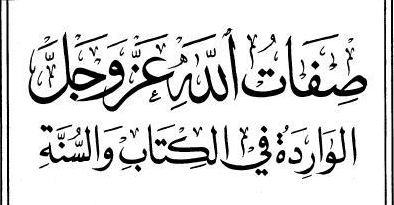 صِفَاتُ ٱللَّهِ عَزَّ وَجَلَّ
الوَارِدَةُ فِي الكِتَابِ وَالسُّنَّةِ